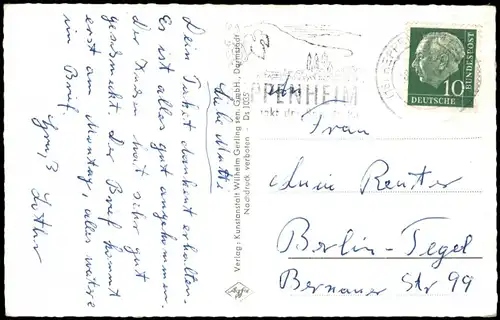 Liebe Mutti
Dein Paket dankend erhalten.
Es ist alles gut angekommen.
Der Kuchen hat sehr gut
geschmeckt. Der Brief kommt
erst am Montag, alles weitere
im Brief.
Gruß Lothar
Verlag: Kunstanstalt Wilhelm Gerling sen. GmbH, Darmstadt
Nachdruck verboten - Ds 1055
PPENHEIM
10
DEUTSCHE
BUNDESPOST
Frau
Reuter
Berlin-Tegel
Bernauer Str 99